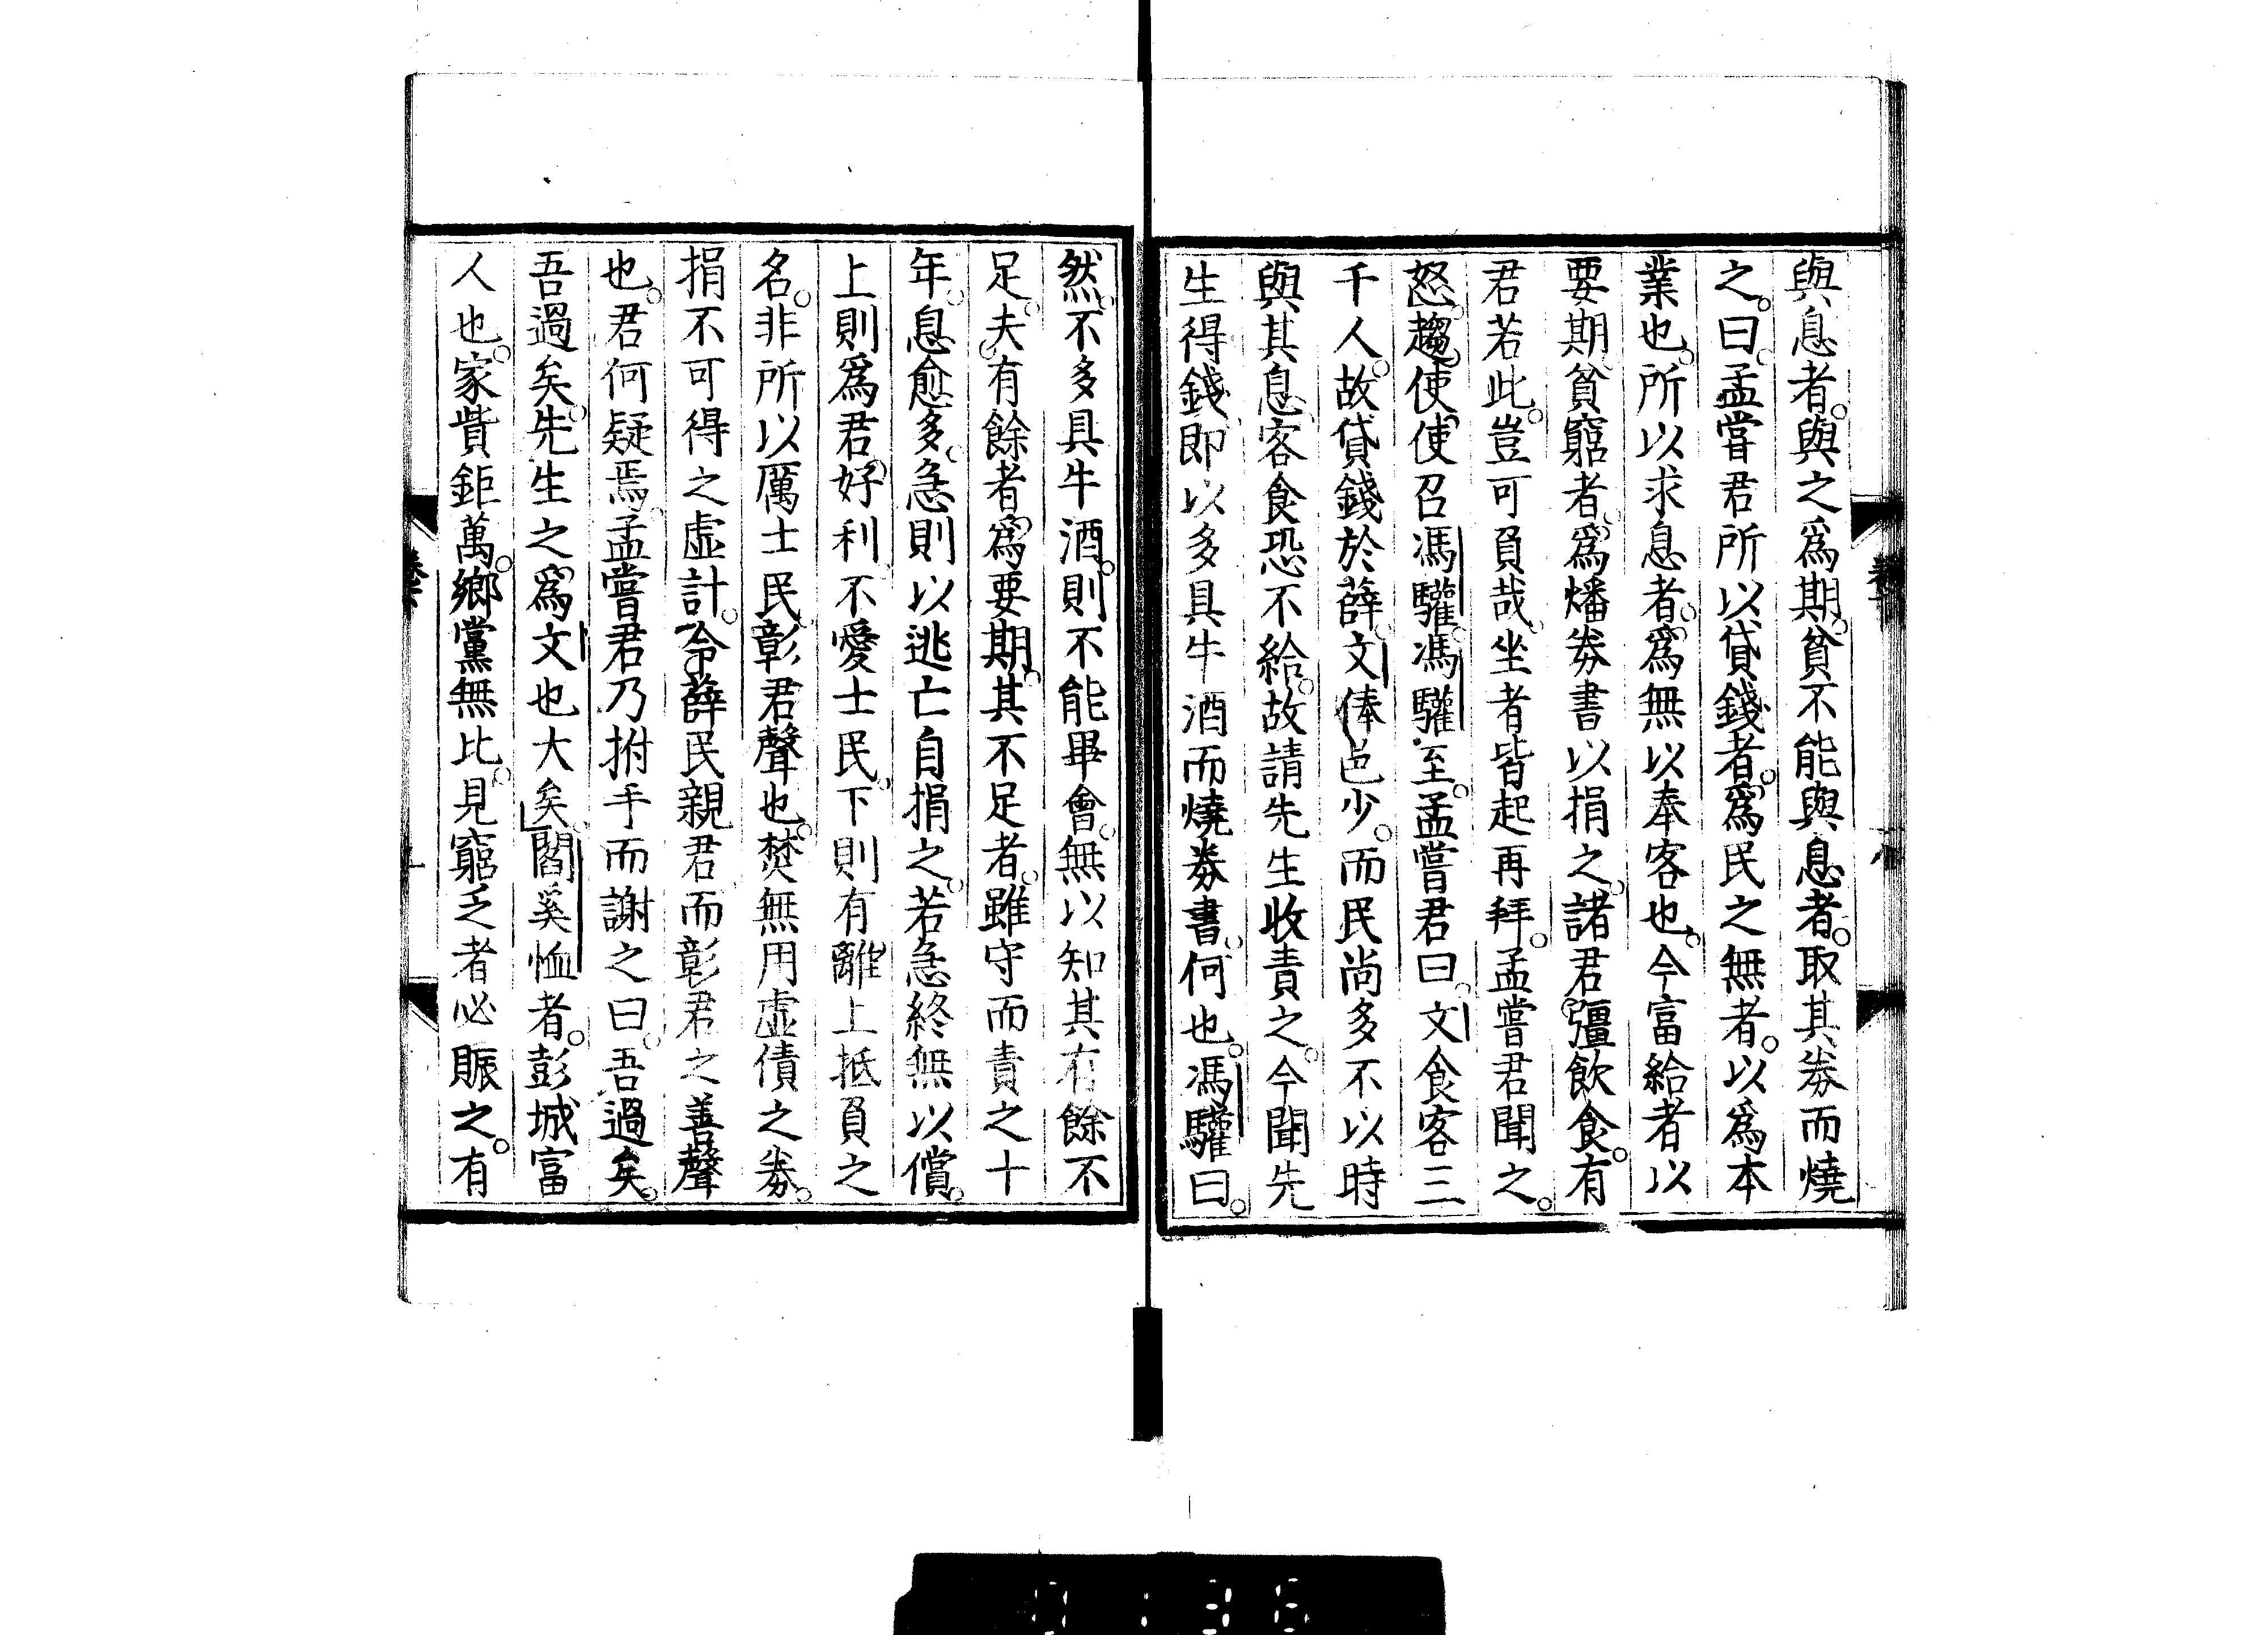 與息者。與之爲期。貧不能與息者。取其券而燒
之。曰。孟嘗君所以貸錢者。爲民之無者。以爲本
業也。所以求息者。爲無以奉客也。今富給者以
要期。貧窮者。爲燔券書以捐之。諸君彊飲食。有
君若此。豈可負哉。坐者皆起再拜。孟嘗君聞之。
怒。趨使使召馮驩。馮驩至。孟嘗君曰。文食客三
千人。故貸錢於薛。文俸邑少。而民尚多不以時
與其息。客食恐不給。故請先生收責之。今聞先
生得錢。即以多具牛酒而燒券書。何也。馮驩曰。
然。不多具牛酒。則不能畢會。無以知其有餘不
足。夫有餘者。爲要期。其不足者。雖守而責之十
年。息愈多。急則以逃亡自捐之。若急終無以償。
上則爲君好利不愛士民。下則有離上抵負之
名。非所以厲士民。彰君聲也。焚無用虛債之券。
捐不可得之虛計。令薛民親君而彰君之善聲
也。君何疑焉。孟嘗君乃拊手而謝之曰。吾過矣。
吾過矣。先生之爲文也大矣。閻奚恤者。彭城富
人也。家貲鉅萬。鄉黨無比。見窮乏者必賑之。有